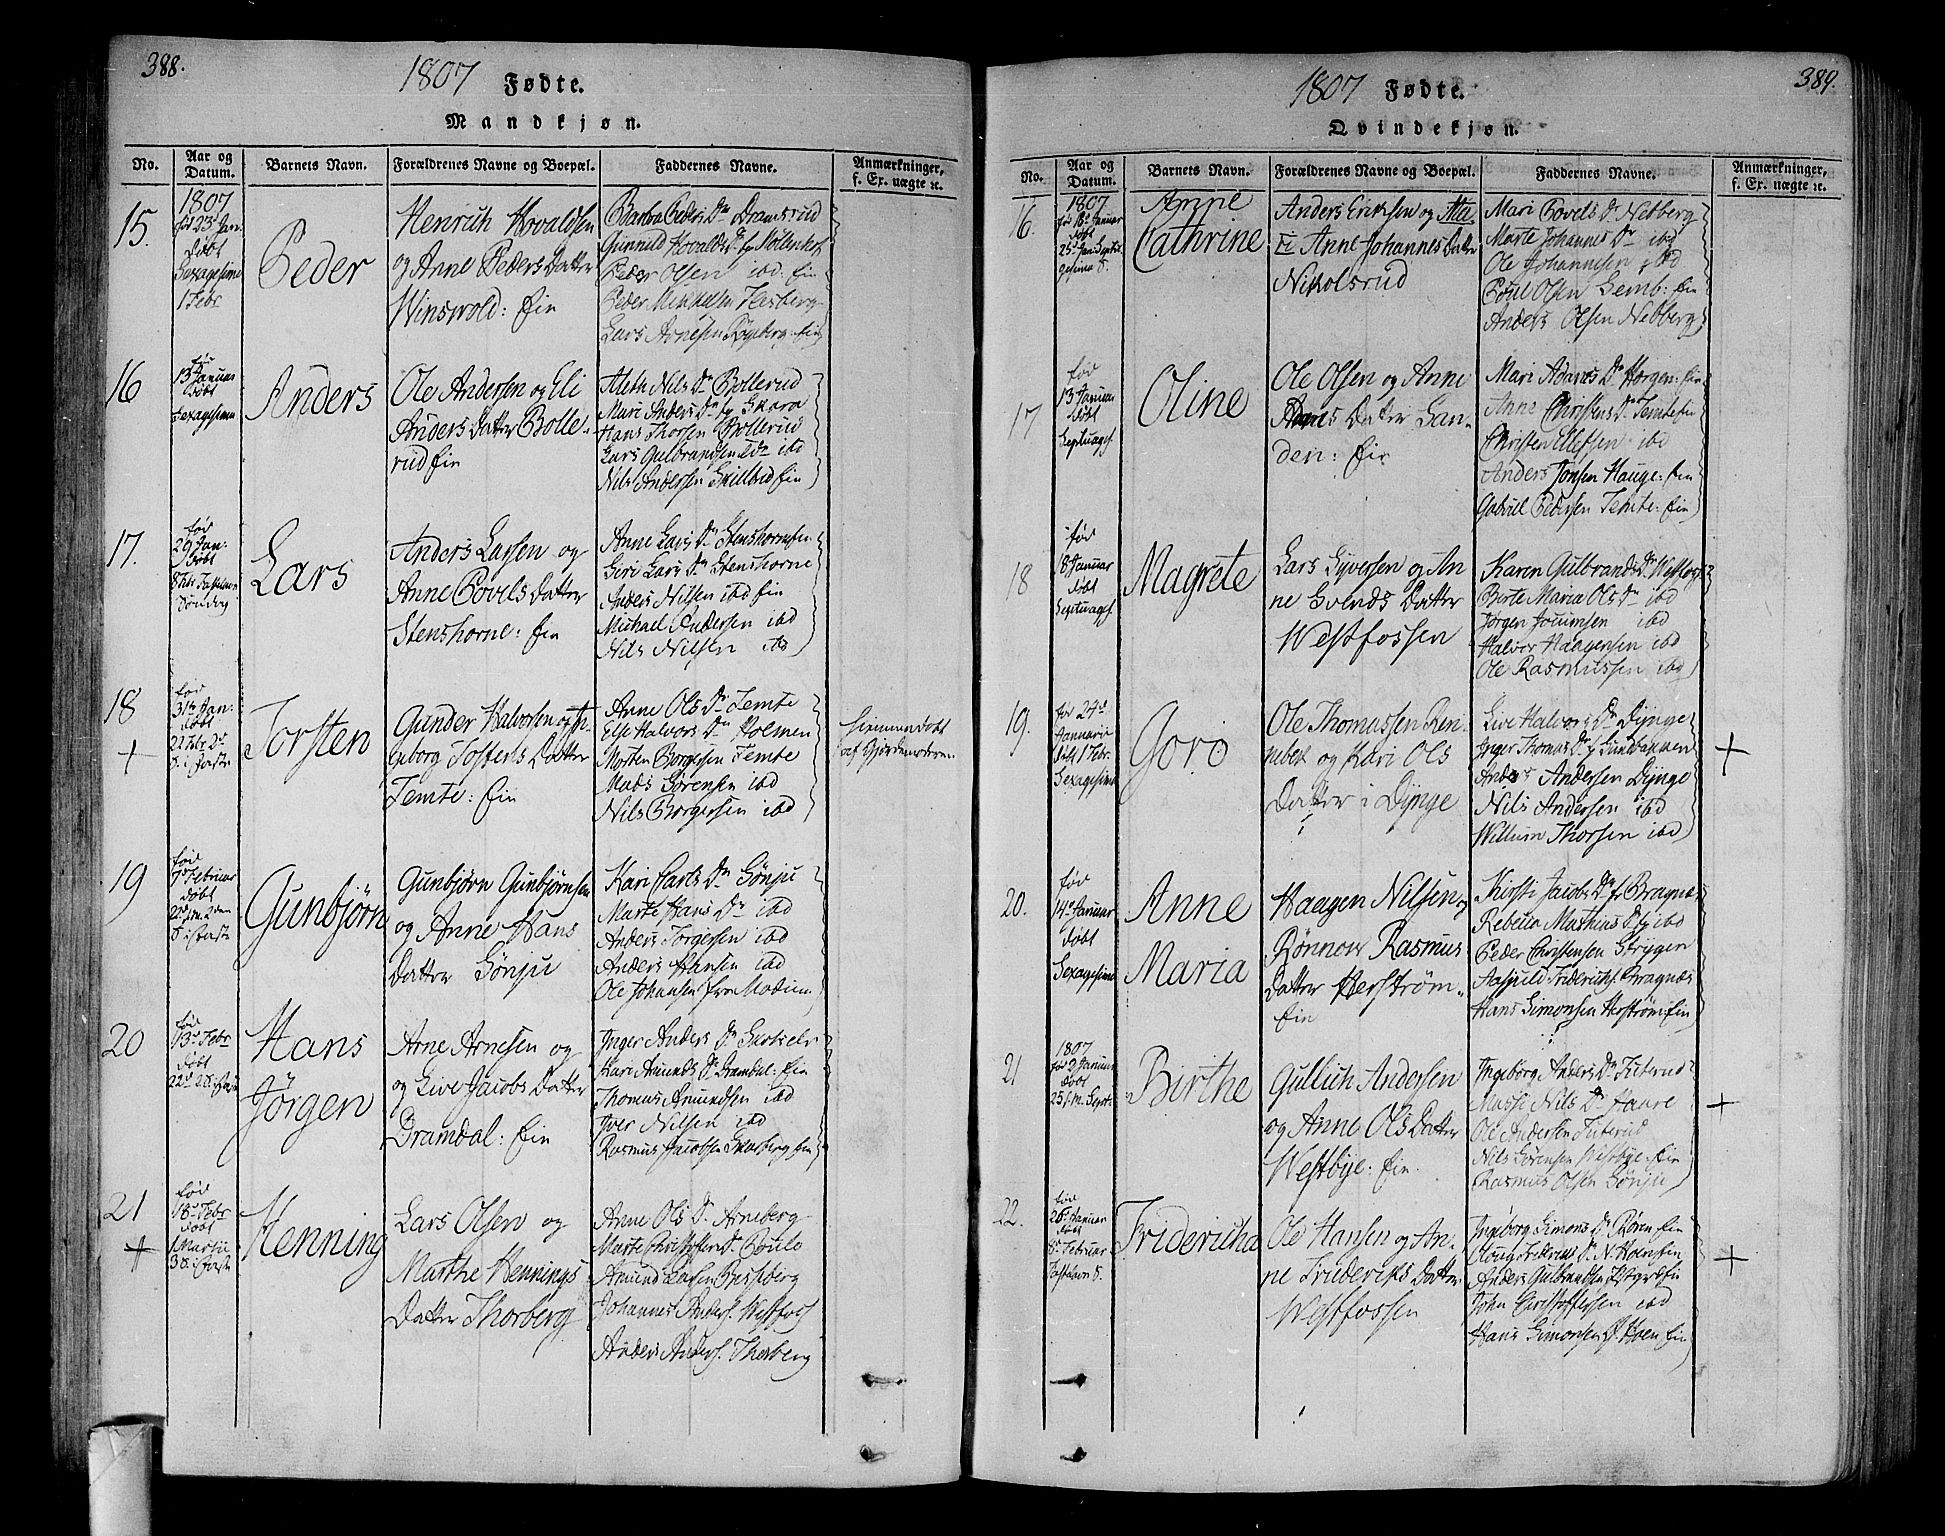 388.
1807 Fødte.
Mandkjøn.
No.
Aar og Datum.
Barnets Navn.
Forældrenes Navne og Boepæl.
Faddernes Navne.
Anmærkninger, f. Ex. uægte ꝛc.
15.
1807
før 23d Jan.
döbt
Sexagesima
1 Febr
Peder
Henrich Hovaldsen
og Anne Peders Datter
Winswold: fin
Peder Olsen ibd. fin
Peder Mikkelsen
Lars Arnesen
16
13 Januar
döbt
Sexagesima
Anders
Ole Andersen og Eli
Anders Datter Bolle-
rud fin
Nils Dr Bollerud
Mari Anders Dr Skara
Hans Thorsen Bollerud
Lars Gulbrandsen ibd
Nils Andersen
17.
föd
29 Jan:
döbt
Söndag
Lars
Anders Larsen og
Anne Povels Datter
Stenshorne: fin
Anne Lars Dr
Siri Lars Dr Stenshorne
Anders Nilsen ibd fin
Michael Andersen ibd
Nils Nilsen ibd
18
+
föd
31te Jan:
döbt
Torsten
Gunder Halvorsen og In-
geborg Tosters Datter
Temte: fin
Anne Ols Dr Temte
Else Halvors Dr Holmen
Morten Borgersen Temte
Mads Sörensen ibd
Nils Borgersen ibd
Hiemmedöbt
af Gjordemoderen
19
föd
7d Februar
döbt
Gunbjørn
Gunbjørn Gunbjørnsen
og Anne Hans
Datter Sönju
Kari Carls Dr Sönju
Marte Hans Dr ibd
Anders Jorgersen ibd
Anders Hansen ibd
Ole Johansen fra Modum
20
föd
13d Febr
döbt
Hans
Jörgen
Arne Arnesen og
og Live Jacobs Datter
Dramdal: fin
Inger Anders Dr
Kari Amunds Dr Dramdal: fin
Thomas Amundsen ibd
Iver Nilsen ibd
Rasmus Jacobsen
21
+
föd
18d Febr
döbt
1 Martii
Henning
Lars Olsen og
Marthe Hennings
Datter Thorberg
Anne Ols D. Arneberg
Marte Christoffers D.
Amund Larsen
Johannes Anders. Westfoss
Anders Anders. Thorberg
389.
1807 Fødte.
Qvindekjøn.
No.
Aar og Datum.
Barnets Navn.
Forældrenes Navne og Boepæl.
Faddernes Navne.
Anmærkninger, f. Ex. uægte ꝛc.
16.
1807
18d Januar
döbt
Anne
Cathrine
Anders Ericksen og
Anne Johannes Datter
Nikolsrud
Mari Povels D. Nebberg
Marte Johannes Dr ibd
Ole Johannesen ibd
Poul Olsen Semb: fin
Anders Olsen Nebberg
17
föd
13 Januar
döbt
Septuages.
Oline
Ole Olsen og Anne
Datter San-
den: fin
Mari Adams Dr Horgen: fin
Anne Christens Dr Temte fin
Christen Ellefsen ibd
Anders Jonsen Hauge: fin
Gabriel Pedersen Temte: fin
18
föd
8 Januar
döbt
Septuages.
Magrete
Lars Syversen og An
ne Svends Datter
Westfossen
Karen Gulbrands Dr
Birte Maria Ols Dr ibd
Jörgen ibd
Halvor Haagensen ibd
Ole Rasmussen ibd
19.
Januarii
döbt 1 Febr.
Sexagesima
Goro
Ole Thomassen Ren-
og Kari Ols
Datter i Dynge
Live Halvors Dr Dynge
Inger Thomas Dr
Anders Andersen Dynge
Nils Andersen ibd
Willum Thorsen ibd
+
20.
föd
14d Januar
döbt
Sexagesima
Anne
Maria
Haagen Nilsen og
Rönnow Rasmus
Datter Herström-
fin
Kirsti Jacobs Dr f Bragnæs
Rebecca Mathias D f ibd
Peder Christensen Strygen
Fridericks. Bragnæs
Hans Simonsen Herström fin
21
1807
9 Januar
döbt
Birthe
Gullich Andersen
og Anne Ols Datter
Westbye: fin
Ingeborg Anders Dr
Masse Nils Dr Haare
Ole Andersen
Nils Sörensen Westbye: fin
Rasmus Olsen Sönju
+
22.
föd
26 Januar
döbt
8d Februar
Fridericha
Ole Hansen og An-
ne Friderichs Datter
Westfossen
Ingeborg Simons Dr Bören fin
N. Hoen fin
Anders Gulbrandsen
John Christoffersen ibd
Hans Simonsen Hoen fin
+